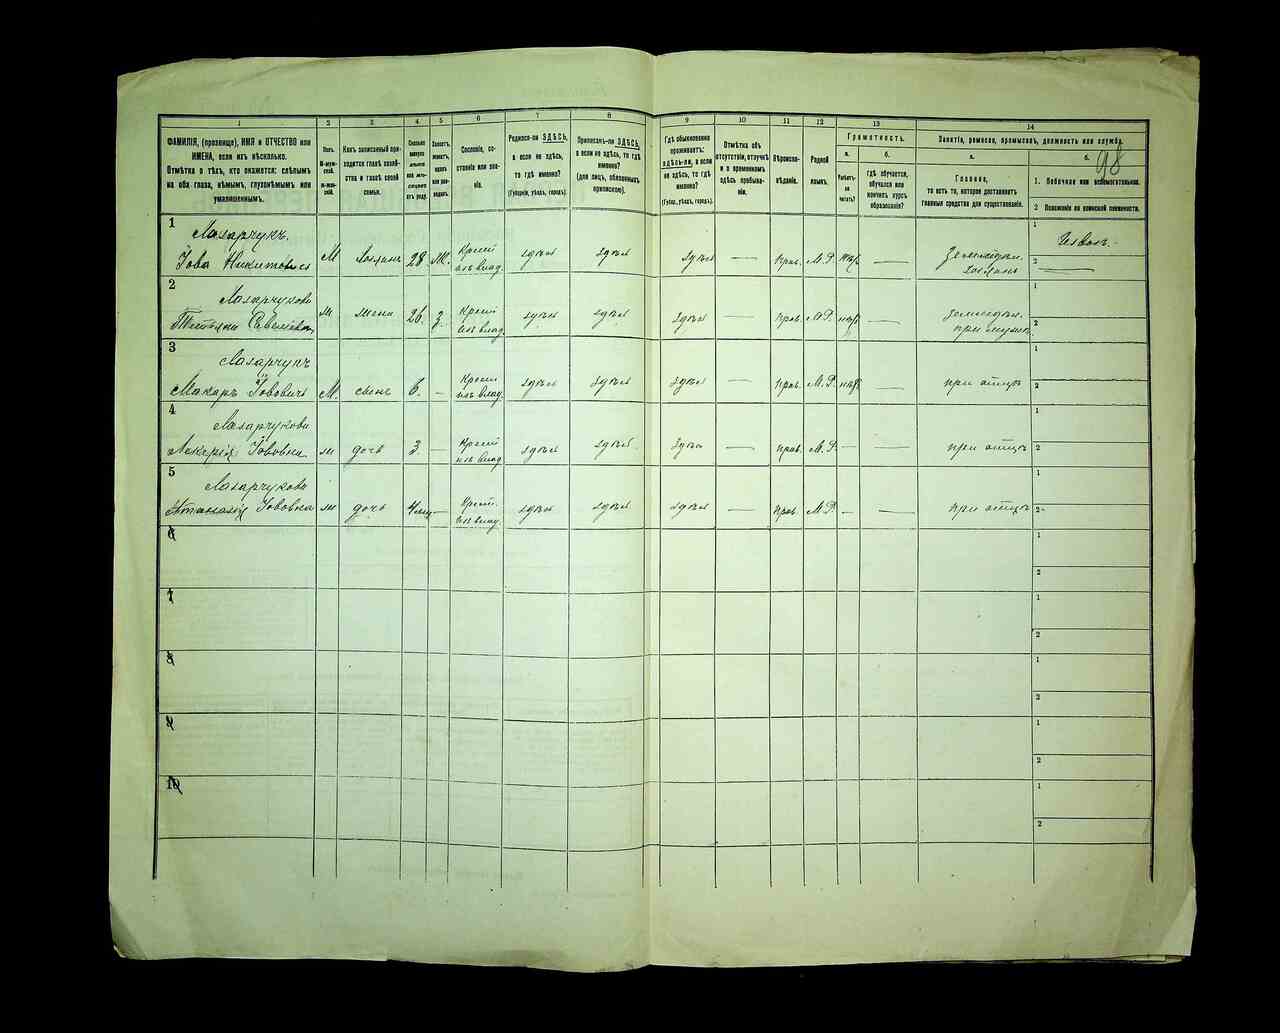 1 2 3 4 5 6 7 8 9 10 11 12 13 14
ФАМИЛІЯ, (прозвище), ИМЯ и ОТЧЕСТВО или
ИМЕНА, если ихъ нѣсколько.
Отмѣтка о тѣхъ, кто окажется: слѣпымъ
на оба глаза, нѣмымъ, глухонѣмымъ или
умалишеннымъ.
Полъ.
М-муж-
ской.
ж-жен-
скій.
Какъ записанный при-
ходится главѣ хозяй-
ства и главѣ своей
семьи.
Сколько
минуло
лѣтъ
отъ роду.
Холостъ,
женатъ,
вдовъ
или раз-
веденъ.
Сословіе, со-
стояніе или зва-
ніе.
Родился-ли ЗДѢСЬ,
а если не здѣсь,
то гдѣ именно?
(Губернія, уѣздъ, городъ).
Приписанъ-ли ЗДѢСЬ,
а если не здѣсь, то гдѣ
именно?
(для лицъ, обязанныхъ
припискою).
Гдѣ обыкновенно
проживаетъ:
здѣсь-ли, а если
не здѣсь, то гдѣ
именно?
(Губер., уѣздъ, городъ).
Отмѣтка объ
отсутствіи, отлучкѣ
и о временномъ
здѣсь пребыва-
ніи.
Вѣроиспо-
вѣданіе.
Родной
языкъ.
Грамотность.
а.
Умѣетъ-
ли
читать?
б.
гдѣ обучается,
обучался или
кончилъ курсъ
образованія?
Занятіе, ремесло, промыселъ, должность или служба.
а.
Главное,
то есть то, которое доставляетъ
главныя средства для существованія.
б.
98
1. Побочное или вспомогательное.
2 Положеніе по воинской повинности.
1
Лазарчукъ
Іова Никитовичъ М хозяинъ 28 ж. Крест. изъ влад. здѣсь здѣсь здѣсь — прав. М.Р. нѣт — Земледѣл. хозяинъ
1 Извоз.
2 —
2
Лазарчукова
ж. жена 26 з. Крест. изъ влад. здѣсь здѣсь здѣсь — прав. М.Р. нѣт — земледѣл. при мужѣ.
1
2
3
Лазарчукъ
Макаръ Іововичъ М. сынъ 6. — Крест. изъ влад. здѣсь здѣсь здѣсь — прав. М.Р. нѣт — при отцѣ
1
2
4
Лазарчукова
Іововна ж дочь 3. — Крест. изъ влад. здѣсь здѣсь здѣсь — прав. М.Р. — — при отцѣ
1
2
5
Лазарчукова
Іововна ж дочь 4 — Крест. изъ влад. здѣсь здѣсь здѣсь — прав. М.Р. — — при отцѣ
1
2
6
1
2
7
1
2
8
1
2
9
1
2
10
1
2